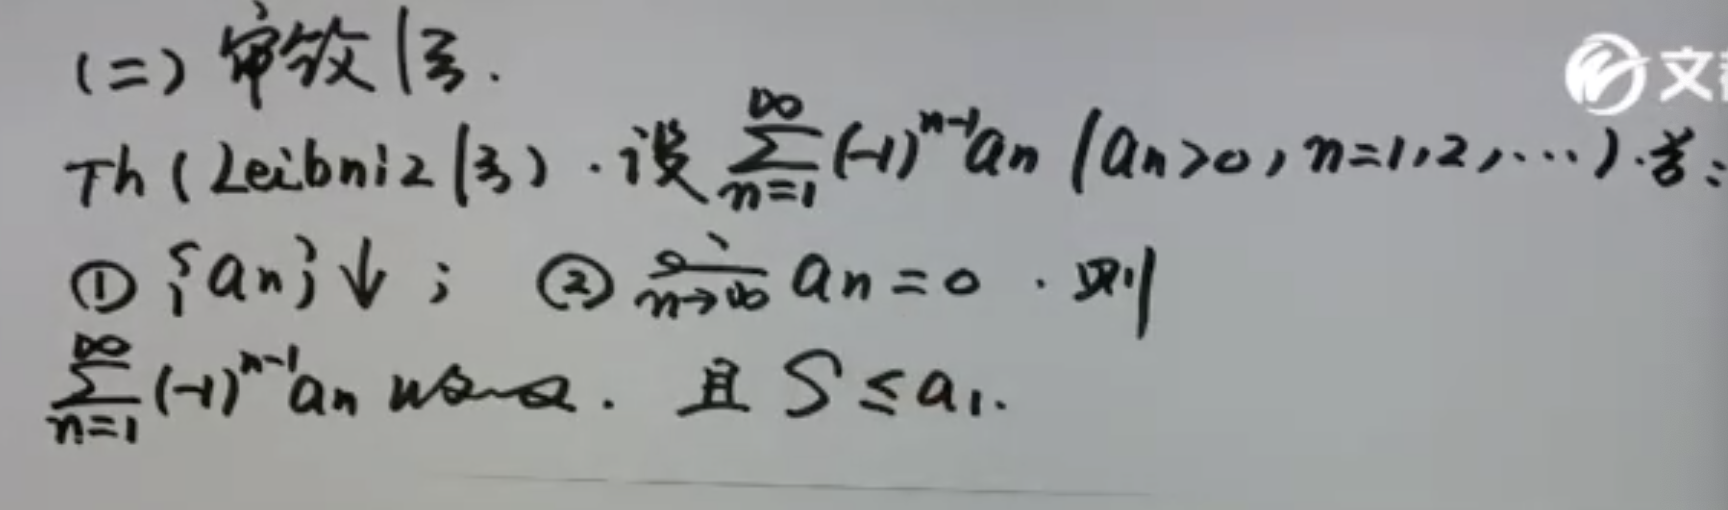 (二) 审敛法.
Th (Leibniz法). 设 $\sum_{n=1}^{\infty}(-1)^{n-1}a_n$ ($a_n>0$, $n=1,2,\cdots$). 若:
① {$a_n$}↓; ② $\lim_{n\to\infty} a_n=0$. 则
$\sum_{n=1}^{\infty}(-1)^{n-1}a_n$ 收敛. 且 $S\le a_1$.
文